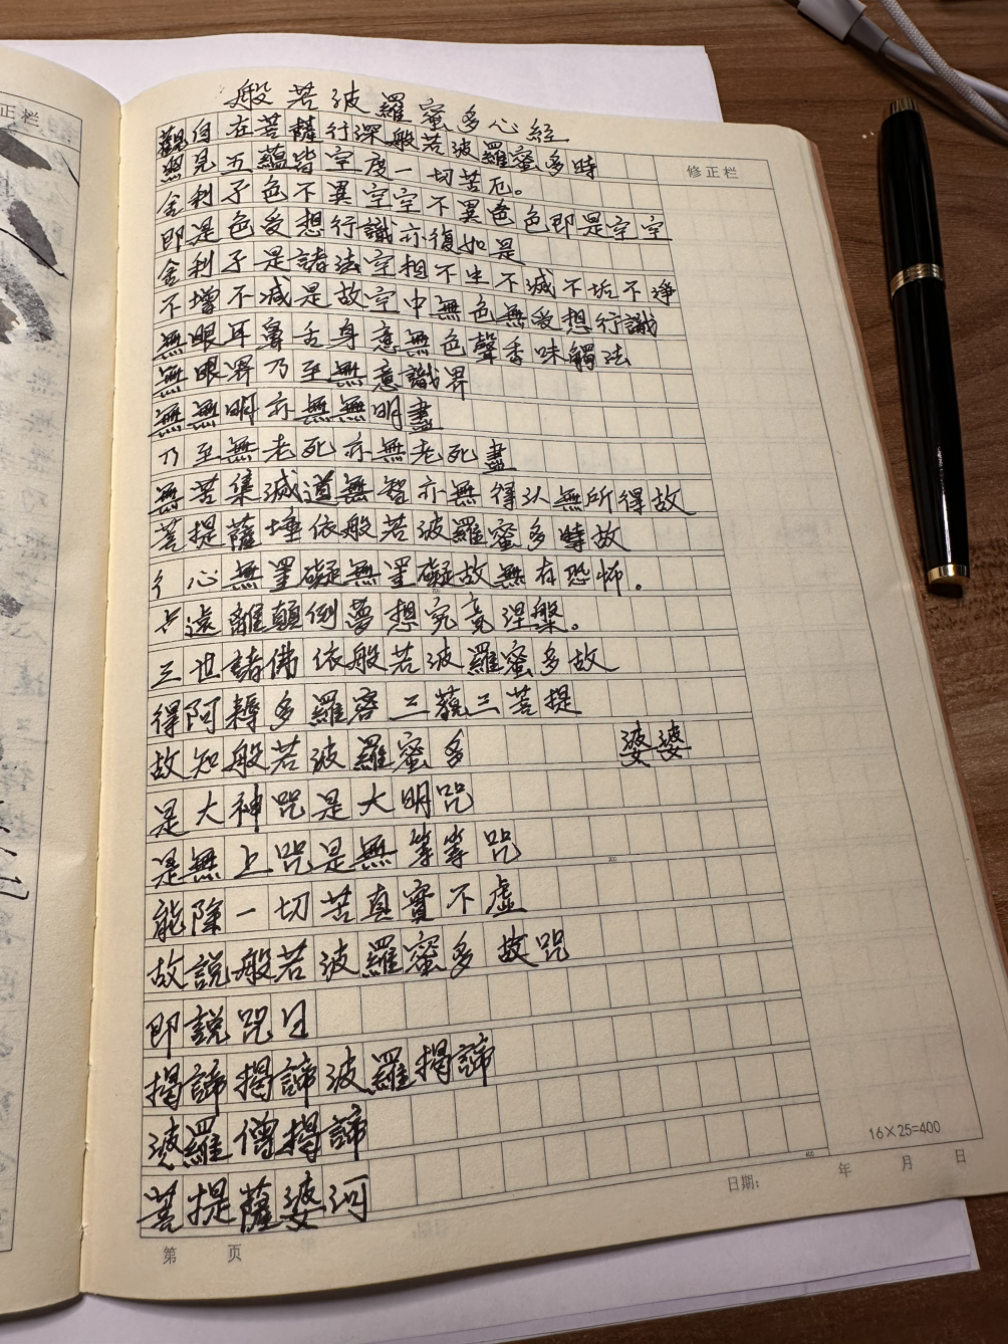 正栏
般若波羅蜜多心經
觀自在菩薩行深般若波羅蜜多時
照見五蘊皆空度一切苦厄。
修正栏
舍利子色不異空空不異色色即是空空
即是色受想行識亦復如是
舍利子是諸法空相不生不滅不垢不淨
不增不减是故空中無色無受想行識
無眼耳鼻舌身意無色聲香味觸法
無眼界乃至無意識界
無無明亦無無明盡
乃至無老死亦無老死盡
無苦集滅道無智亦無得以無所得故
菩提薩埵依般若波羅蜜多時故
心無罣礙無罣礙故無有恐怖。
遠離顛倒夢想究竟涅槃。
三世諸佛依般若波羅蜜多故
得阿耨多羅三藐三菩提
故知般若波羅蜜多
婆婆
是大神咒是大明咒
是無上咒是無等等咒
能除一切苦真實不虛
故說般若波羅蜜多故咒
即說咒曰
揭諦揭諦波羅揭諦
波羅僧揭諦
菩提薩婆訶
16×25=400
日期: 年 月 日
第 页